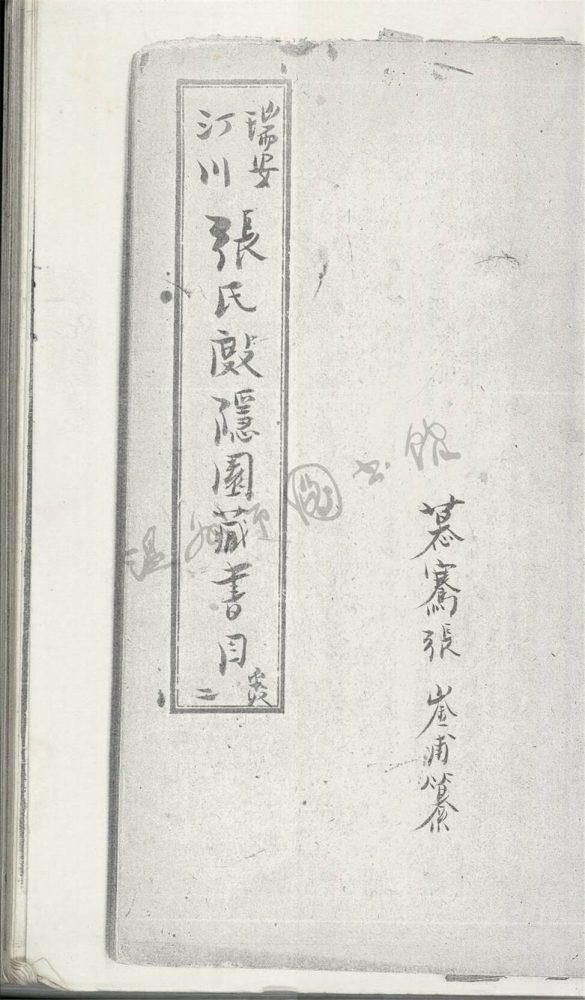 慕騫張崟浦纂
瑞安
汀川
張氏𢾅隱園藏書目
卷
二
温州市圖書館